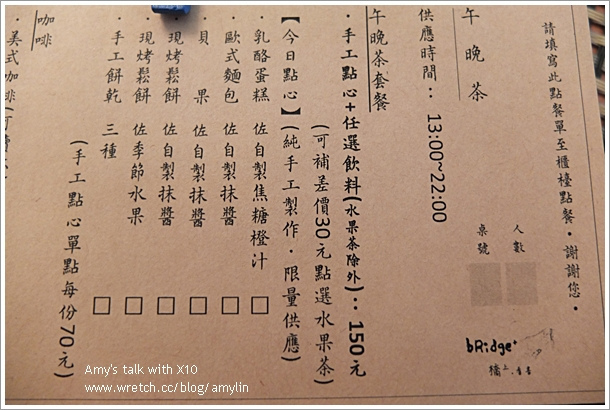 請填寫此點餐單至櫃檯點餐·謝謝您·
人數
桌號
午晚茶
供應時間：13:00~22:00
午晚茶套餐
·手工點心+任選飲料(水果茶除外)：150元
(可補差價30元點選水果茶)
【今日點心】(純手工製作·限量供應)
乳酪蛋糕 佐自製焦糖橙汁 □
歐式麵包 佐自製抹醬 □
貝果 佐自製抹醬 □
現烤鬆餅 佐自製抹醬 □
現烤鬆餅 佐季節水果 □
手工餅乾 三種 □
(手工點心單點每份70元)
咖啡
·美式咖啡(可
bRidge+
橋
Amy's talk with X10
www.wretch.cc/blog/amylin